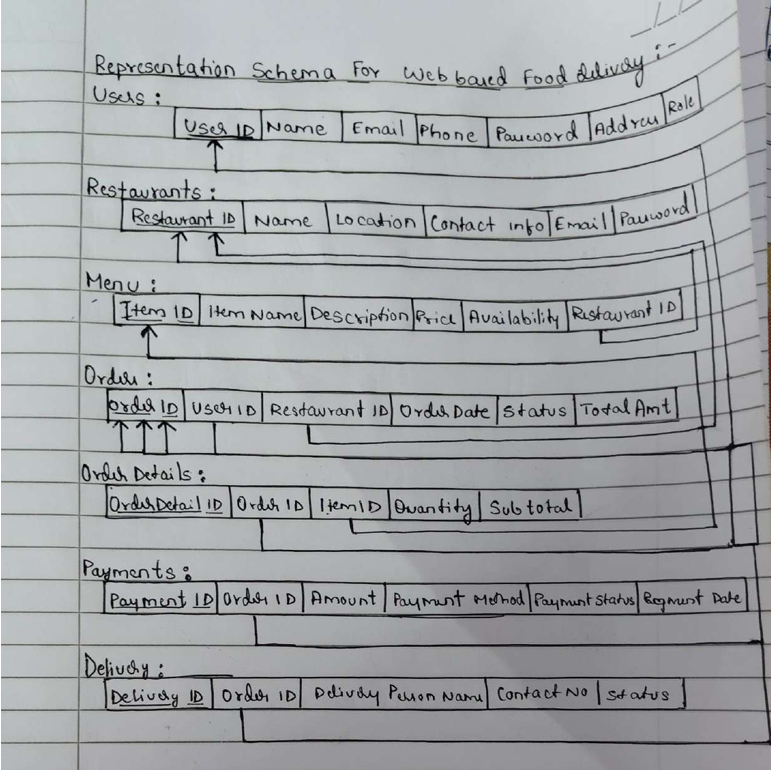 Representation Schema For Web based Food delivery :-
Users :
User ID Name Email Phone Password Address Role
Restaurants :
Restaurant ID Name Location Contact info Email Password
Menu :
Item ID Item Name Description Price Availability Restaurant ID
Order :
Order ID User ID Restaurant ID Order Date Status Total Amt
Order Details :
OrderDetail ID Order ID Item ID Quantity Subtotal
Payments :
Payment ID Order ID Amount Payment Method Payment Status Date
Delivery :
Delivery ID Order ID Delivery Person Name Contact No Status